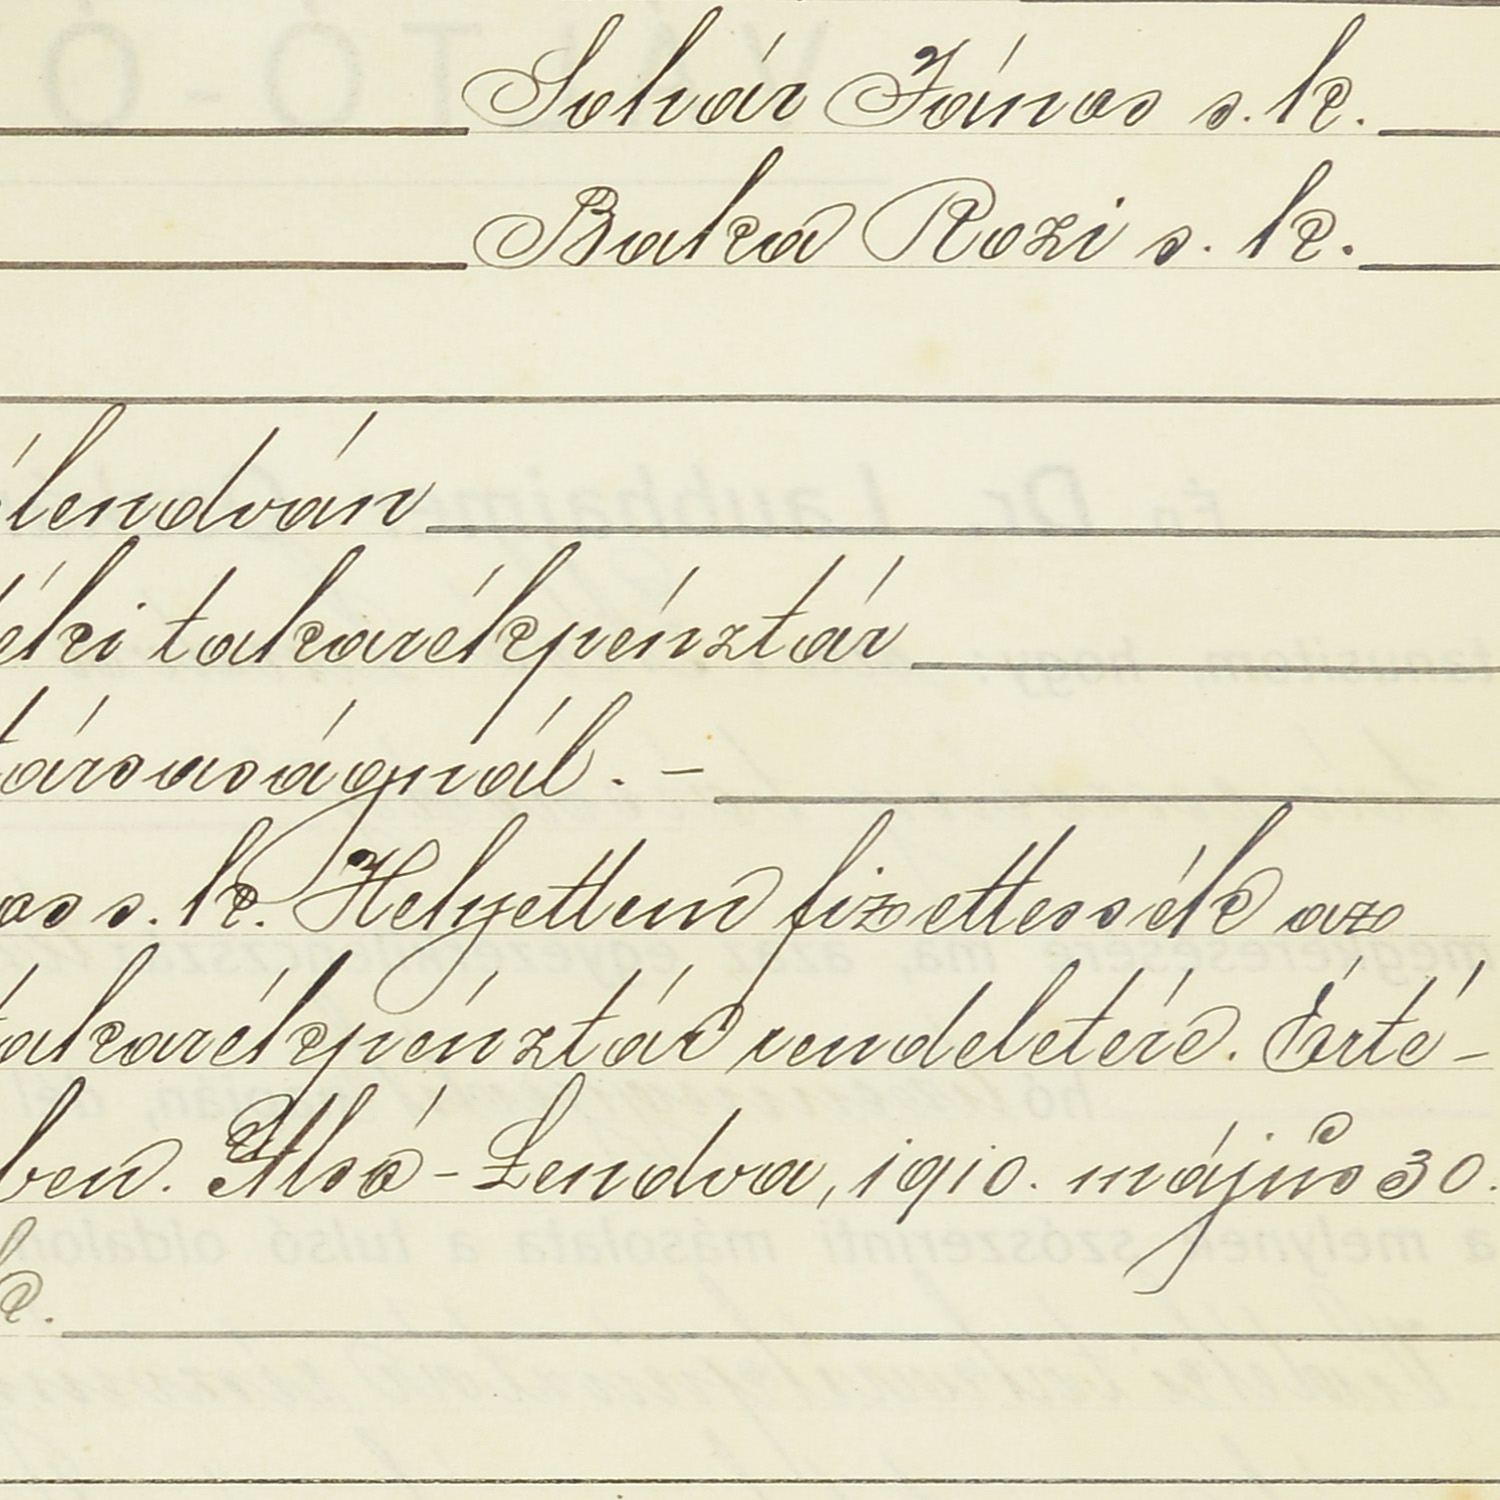 Sohár János s. k.
Baka Rozi s. k.
élendván
éki takarékpénztár
társaságnál. –
os s. k. Helyettem fizettessék az
takarékpénztár rendeletére. Érté-
ben. Alsó-Lendva, 1910. május 30.
k.